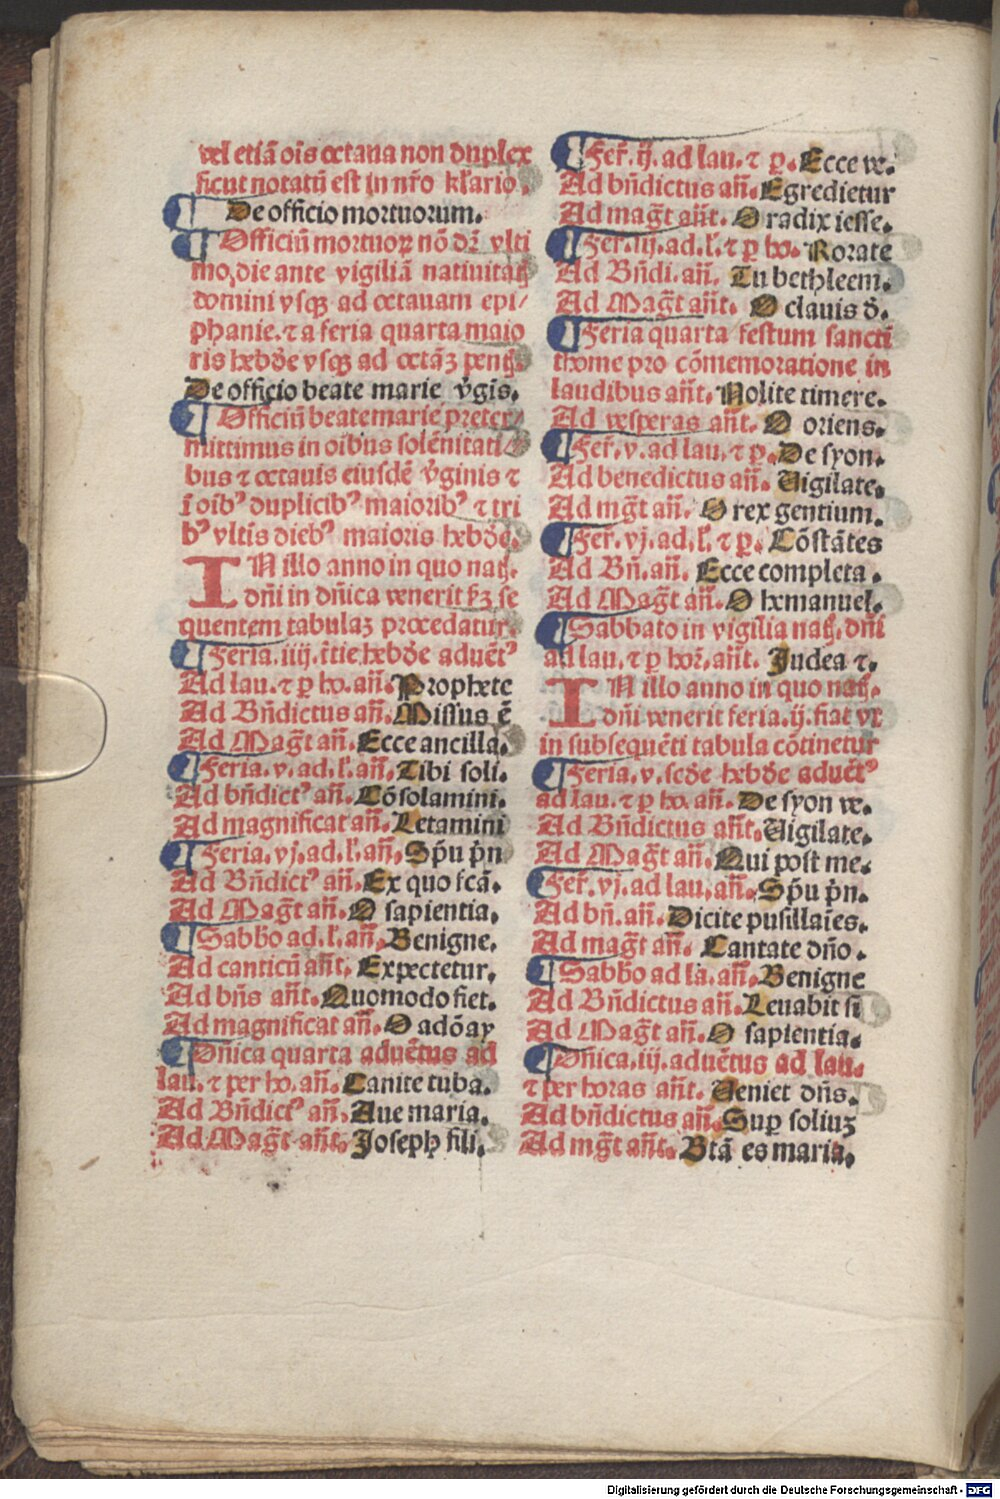 vel etiã oĩs octaua non duplex
ficut notatũ est in nr̃o kl'ario.
De officio mortuorum.
¶ Officiũ mortuoꝝ nõ dr̃ vlti
mo, die ante vigiliã natiuitatꝭ
domini vsqꝫ ad octauam epi/
phanie. ⁊ a feria quarta maio
ris hebde vsqꝫ ad octãꝫ pentꝭ.
De officio beate marie v̓gĩs.
¶ Officiũ beate marie preter/
mittimus in oĩbus solẽnitati
bus ⁊ octauis eiusdẽ v̓ginis ⁊
ĩ oĩbꝰ duplicibꝰ maioribꝰ ⁊ tri
bꝰ vltĩs diebꝰ maioris hebde.
IN illo anno in quo natꝭ.
dñi in dñica venerit fꝫ se
quentem tabulaꝫ procedatur.
¶ Feria. iiij. t̃tie hebde aduẽtꝰ
Ad lau. ⁊ p ho. añ. Prophete
Ad Bñdictus añ. Missus ẽ
Ad Mag̃t añ. Ecce ancilla.
¶ Feria. v. ad. l'. añ. Tibi soli.
Ad bñdictꝰ añ. Cõsolamini.
Ad magnificat añ. Letamini
¶ Feria. vj. ad. l'. añ. Sp̃u p̃n
Ad Bñdictꝰ añ. Ex quo fcã.
Ad Mag̃t añ. O sapientia.
¶ Sabbo ad. l'. añ. Benigne.
Ad canticũ añt. Expectetur.
Ad bñs añt. Quomodo fiet.
Ad magnificat añ. O adõay
¶ Dñica quarta aduẽtus ad
lau. ⁊ per ho. añ. Canite tuba.
Ad Bñdictꝰ añ. Aue maria.
Ad Mag̃t añt. Joseph fili.
¶ Fer̃. ij. ad lau. ⁊ p. Ecce ve.
Ad bñdictus añ. Egredietur
Ad mag̃t añt. O radix iesse.
¶ Fer̃. iij. ad. l'. ⁊ p ho. Rorate
Ad Bñdi. añ. Tu bethleem.
Ad Mag̃t añt. O clauis d̃.
¶ Feria quarta festum sancti
thome pro cõmemoratione in
laudibus añt. Nolite timere.
Ad vesperas añt. O oriens.
¶ Fer̃. v. ad lau. ⁊ p. De syon.
Ad benedictus añ. Vigilate.
Ad mg̃t añ. O rex gentium.
¶ Fer̃. vj. ad. l'. ⁊ p. Cõstãtes
Ad Bñ. añ. Ecce completa.
Ad Mag̃t añ. O hemanuel.
¶ Sabbato in vigilia natꝭ. dñi
ad lau. ⁊ p hor̃. añt. Judea ⁊.
IN illo anno in quo natꝭ.
dñi venerit feria. ij. fiat vt
in subsequẽti tabula cõtinetur
¶ Feria. v. scde hebde aduẽtꝰ
ad lau. ⁊ p ho. añ. De syon ve.
Ad Bñdictus añt. Vigilate.
Ad Mag̃t añ. Qui post me.
¶ Fer̃. vj. ad lau. añ. Sp̃u p̃n.
Ad bñ. añ. Dicite pusillaĩes.
Ad mag̃t añ. Cantate dño.
¶ Sabbo ad la. añ. Benigne
Ad Bñdictus añ. Leuabit si
Ad Mag̃t añ. O sapientia.
¶ Dñica. iij. aduẽtus ad lau.
⁊ per horas añt. Veniet dñs.
Ad bñdictus añ. Sup soliuꝫ
Ad mg̃t añt. Btã es maria.
Digitalisierung gefördert durch die Deutsche Forschungsgemeinschaft - DFG